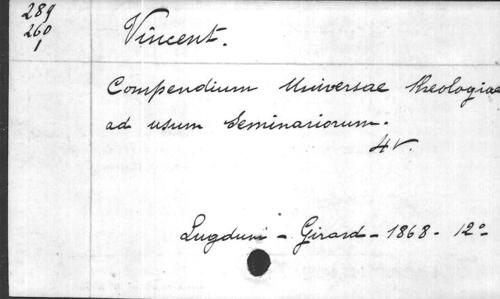 289
260
1
Vincent.
Compendium Universae theologiae
ad usum Seminariorum.
4 v.
Lugduni - Girard - 1868 - 12°